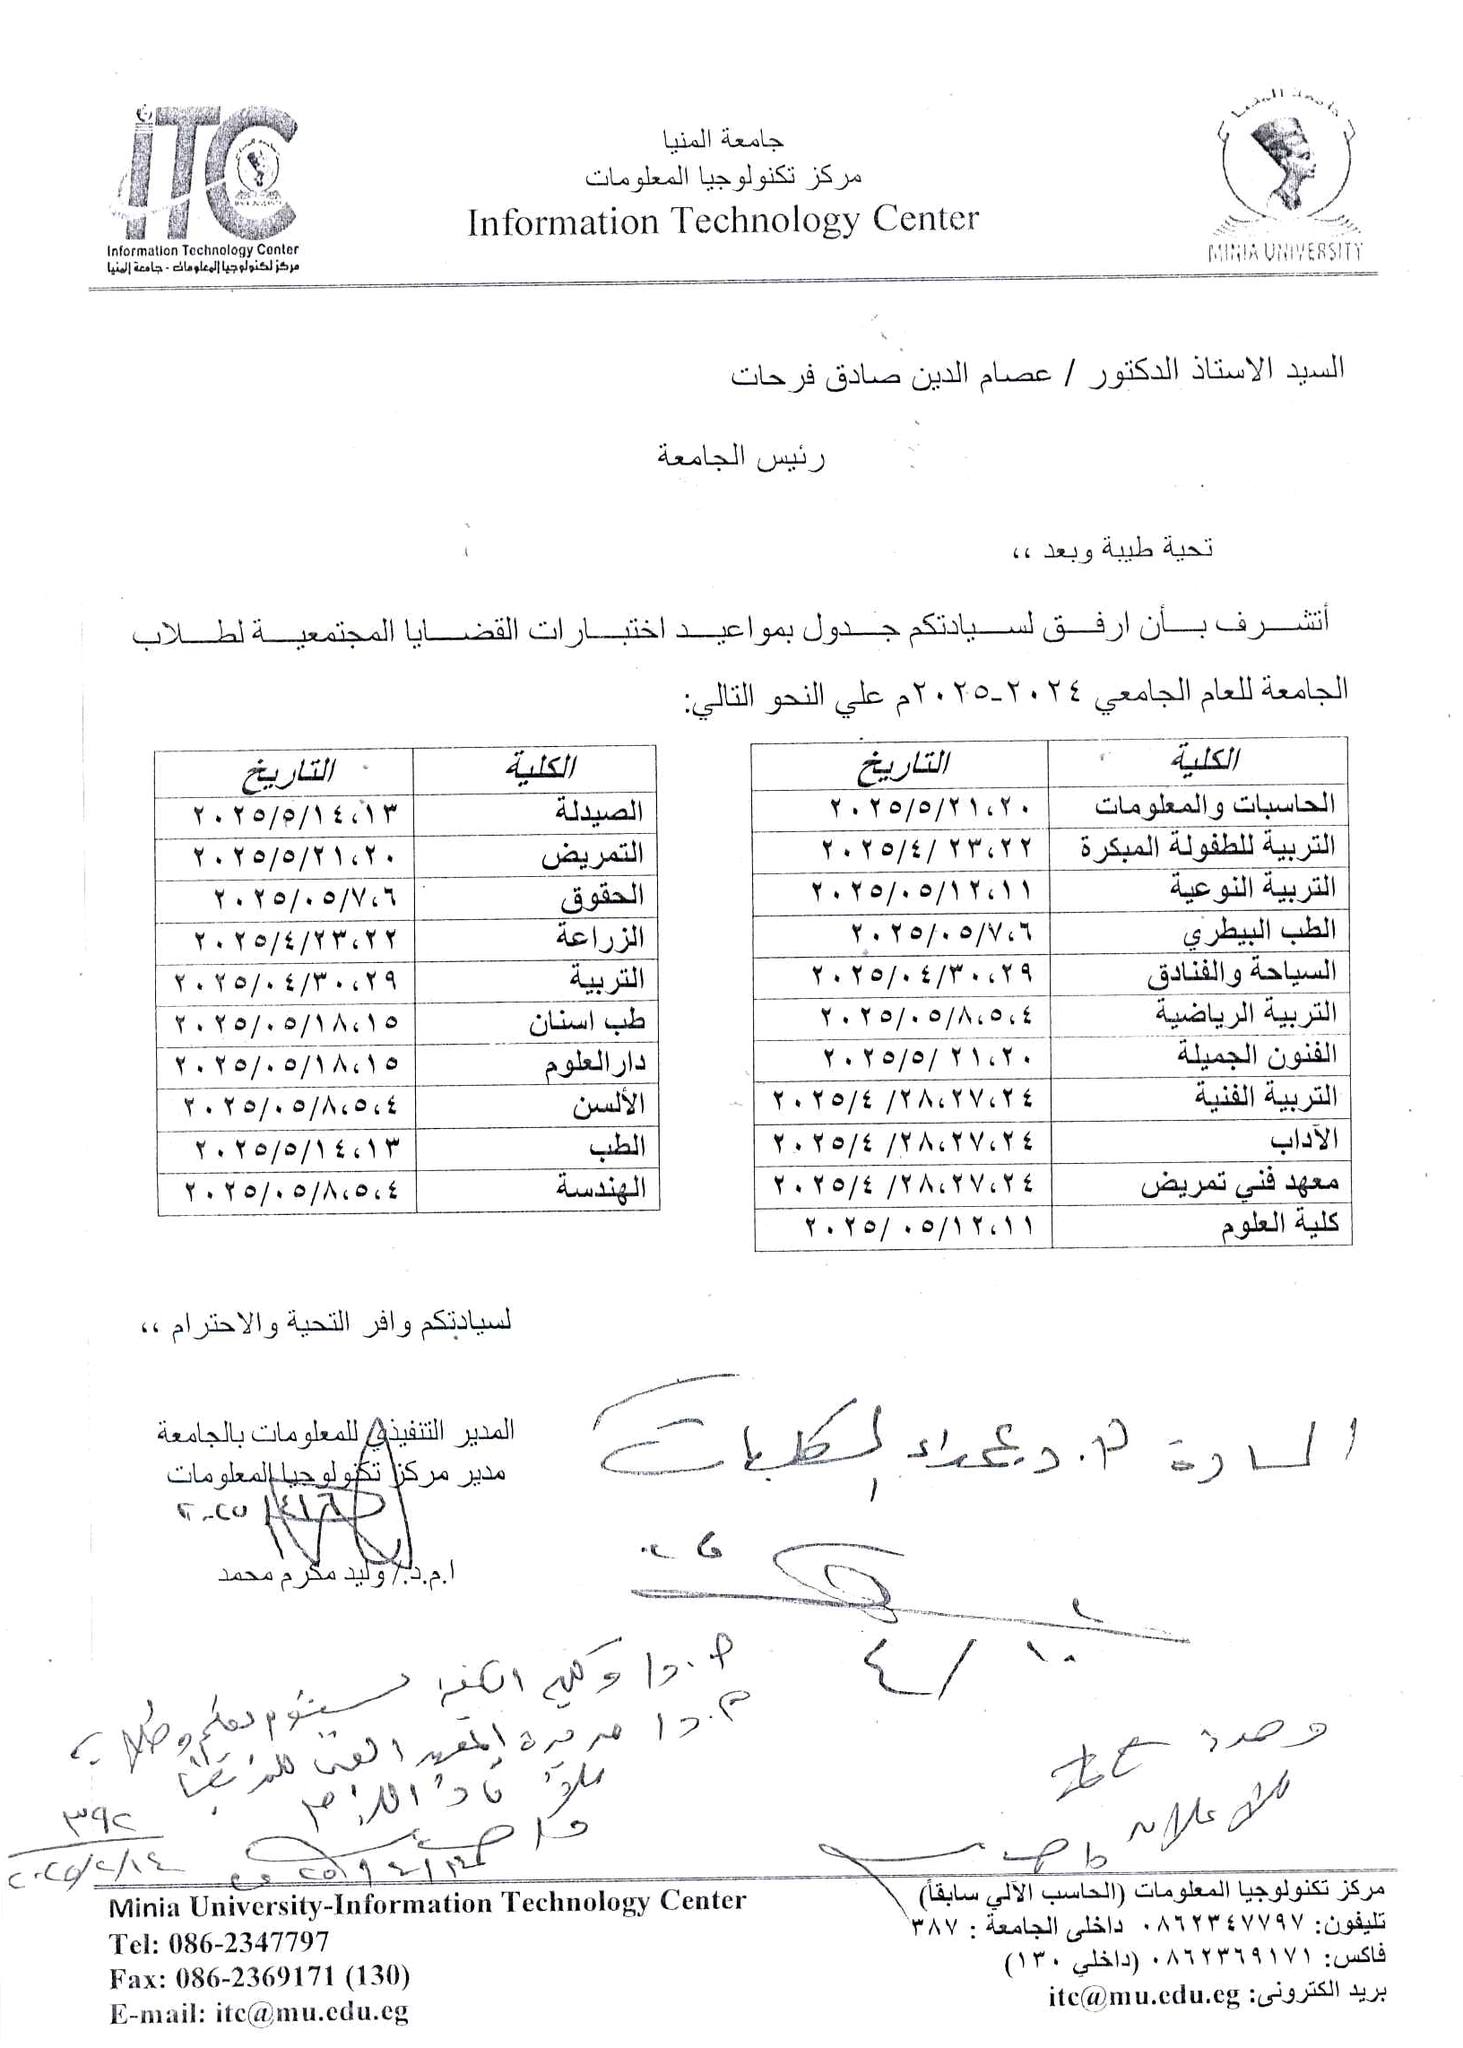 جامعة المنيا
مركز تكنولوجيا المعلومات
Information Technology Center
ITC
Information Technology Center
مركز تكنولوجيا المعلومات - جامعة المنيا
جامعة المنيا
MINIA UNIVERSITY
السيد الاستاذ الدكتور / عصام الدين صادق فرحات
رئيس الجامعة
تحية طيبة وبعد ،،
أتشرف بأن ارفق لسيادتكم جدول بمواعيد اختبارات القضايا المجتمعية لطلاب
الجامعة للعام الجامعي ٢٠٢٤-٢٠٢٥م علي النحو التالي:
الكلية التاريخ
الحاسبات والمعلومات ٢٠٢٥/٥/٢١،٢٠
التربية للطفولة المبكرة ٢٠٢٥/٤/ ٢٣،٢٢
التربية النوعية ٢٠٢٥/٠٥/١٢،١١
الطب البيطري ٢٠٢٥/٠٥/٧،٦
السياحة والفنادق ٢٠٢٥/٠٤/٣٠،٢٩
التربية الرياضية ٢٠٢٥/٠٥/٨،٥،٤
الفنون الجميلة ٢٠٢٥/٥/ ٢١،٢٠
التربية الفنية ٢٠٢٥/٤ /٢٨،٢٧،٢٤
الآداب ٢٠٢٥/٤ /٢٨،٢٧،٢٤
معهد فني تمريض ٢٠٢٥/٤ /٢٨،٢٧،٢٤
كلية العلوم ٢٠٢٥/ ٠٥/١٢،١١
الكلية التاريخ
الصيدلة ٢٠٢٥/٥/١٤،١٣
التمريض ٢٠٢٥/٥/٢١،٢٠
الحقوق ٢٠٢٥/٠٥/٧،٦
الزراعة ٢٠٢٥/٤/٢٣،٢٢
التربية ٢٠٢٥/٠٤/٣٠،٢٩
طب اسنان ٢٠٢٥/٠٥/١٨،١٥
دار العلوم ٢٠٢٥/٠٥/١٨،١٥
الألسن ٢٠٢٥/٠٥/٨،٥،٤
الطب ٢٠٢٥/٥/١٤،١٣
الهندسة ٢٠٢٥/٠٥/٨،٥،٤
لسيادتكم وافر التحية والاحترام ،،
المدير التنفيذي للمعلومات بالجامعة
مدير مركز تكنولوجيا المعلومات
ا.م.د./ وليد مكرم محمد
السادة ا.د عمداء الكليات
١٠ / ٤
ا.د/ وكيل الكلية
ا.د/ مديرة المعهد الفني للتمريض
وحدة
للاعلان
٣٩٢
Minia University-Information Technology Center
Tel: 086-2347797
Fax: 086-2369171 (130)
E-mail: itc@mu.edu.eg
مركز تكنولوجيا المعلومات (الحاسب الآلي سابقاً)
تليفون: ٠٨٦٢٣٤٧٧٩٧ داخلى الجامعة : ٣٨٧
فاكس: ٠٨٦٢٣٦٩١٧١ (داخلي ١٣٠)
بريد الكترونى: itc@mu.edu.eg